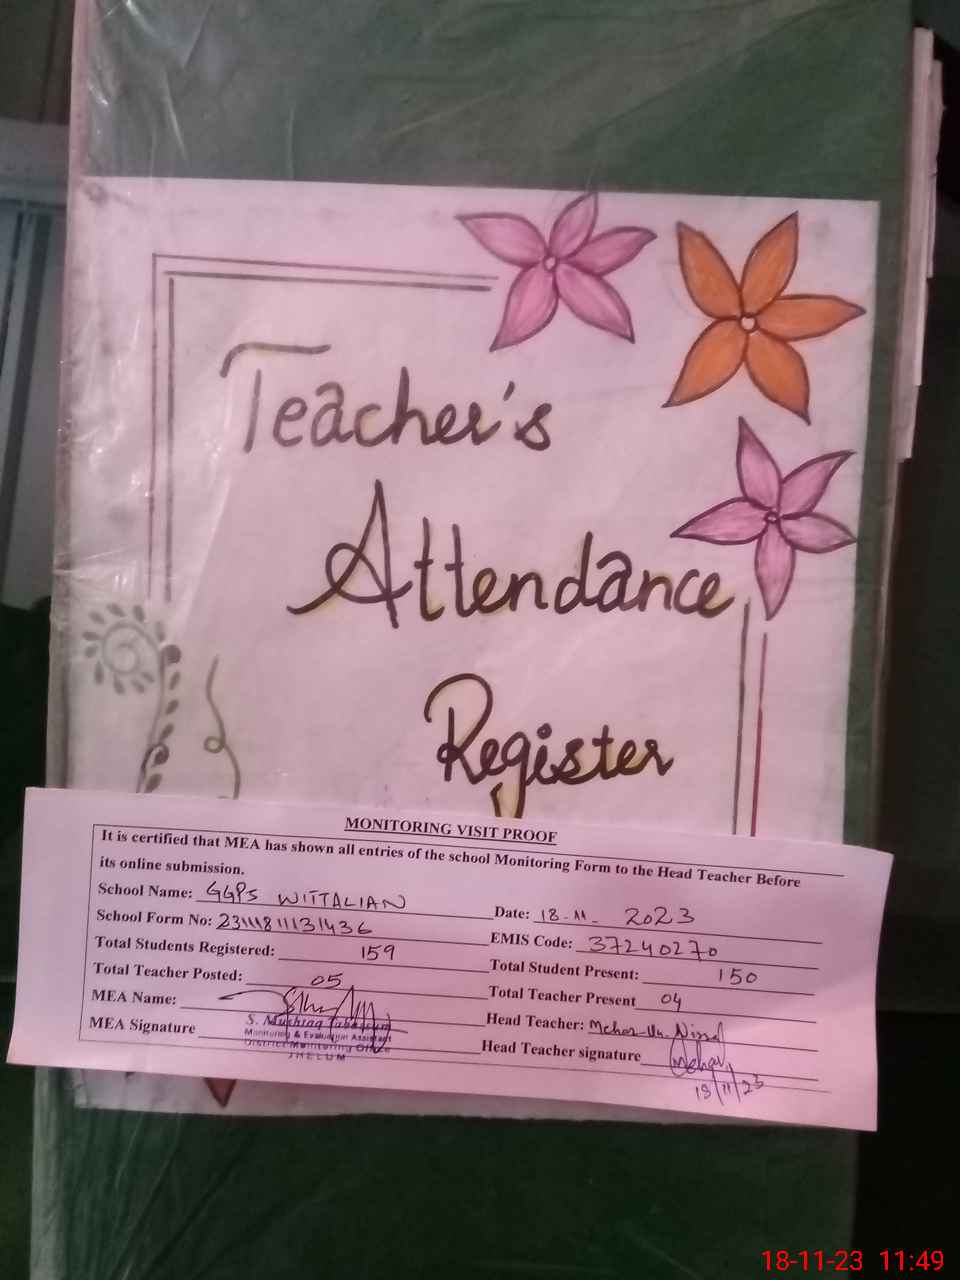 Teacher's
Attendance
Register
MONITORING VISIT PROOF
It is certified that MEA has shown all entries of the school Monitoring Form to the Head Teacher Before
its online submission.
School Name: GGPS WITTALIAN
Date: 18-11-2023
School Form No:
EMIS Code: 37240270
Total Students Registered: 159
Total Student Present: 150
Total Teacher Posted: 05
Total Teacher Present 04
MEA Name:
Head Teacher:
S. Mushtaq Tabassum
MEA Signature
Monitoring & Evaluation Assistant
District Monitoring Office
JHELUM
Head Teacher signature
18/11/23
18-11-23 11:49